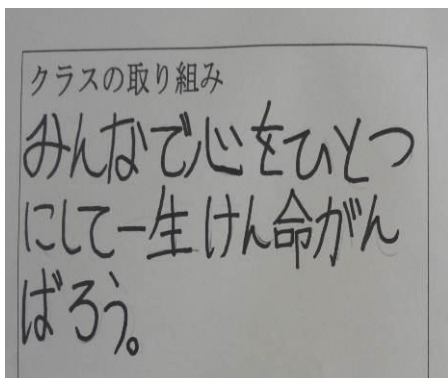 クラスの取り組み
みんなで心をひとつ
にして一生けん命がん
ばろう。